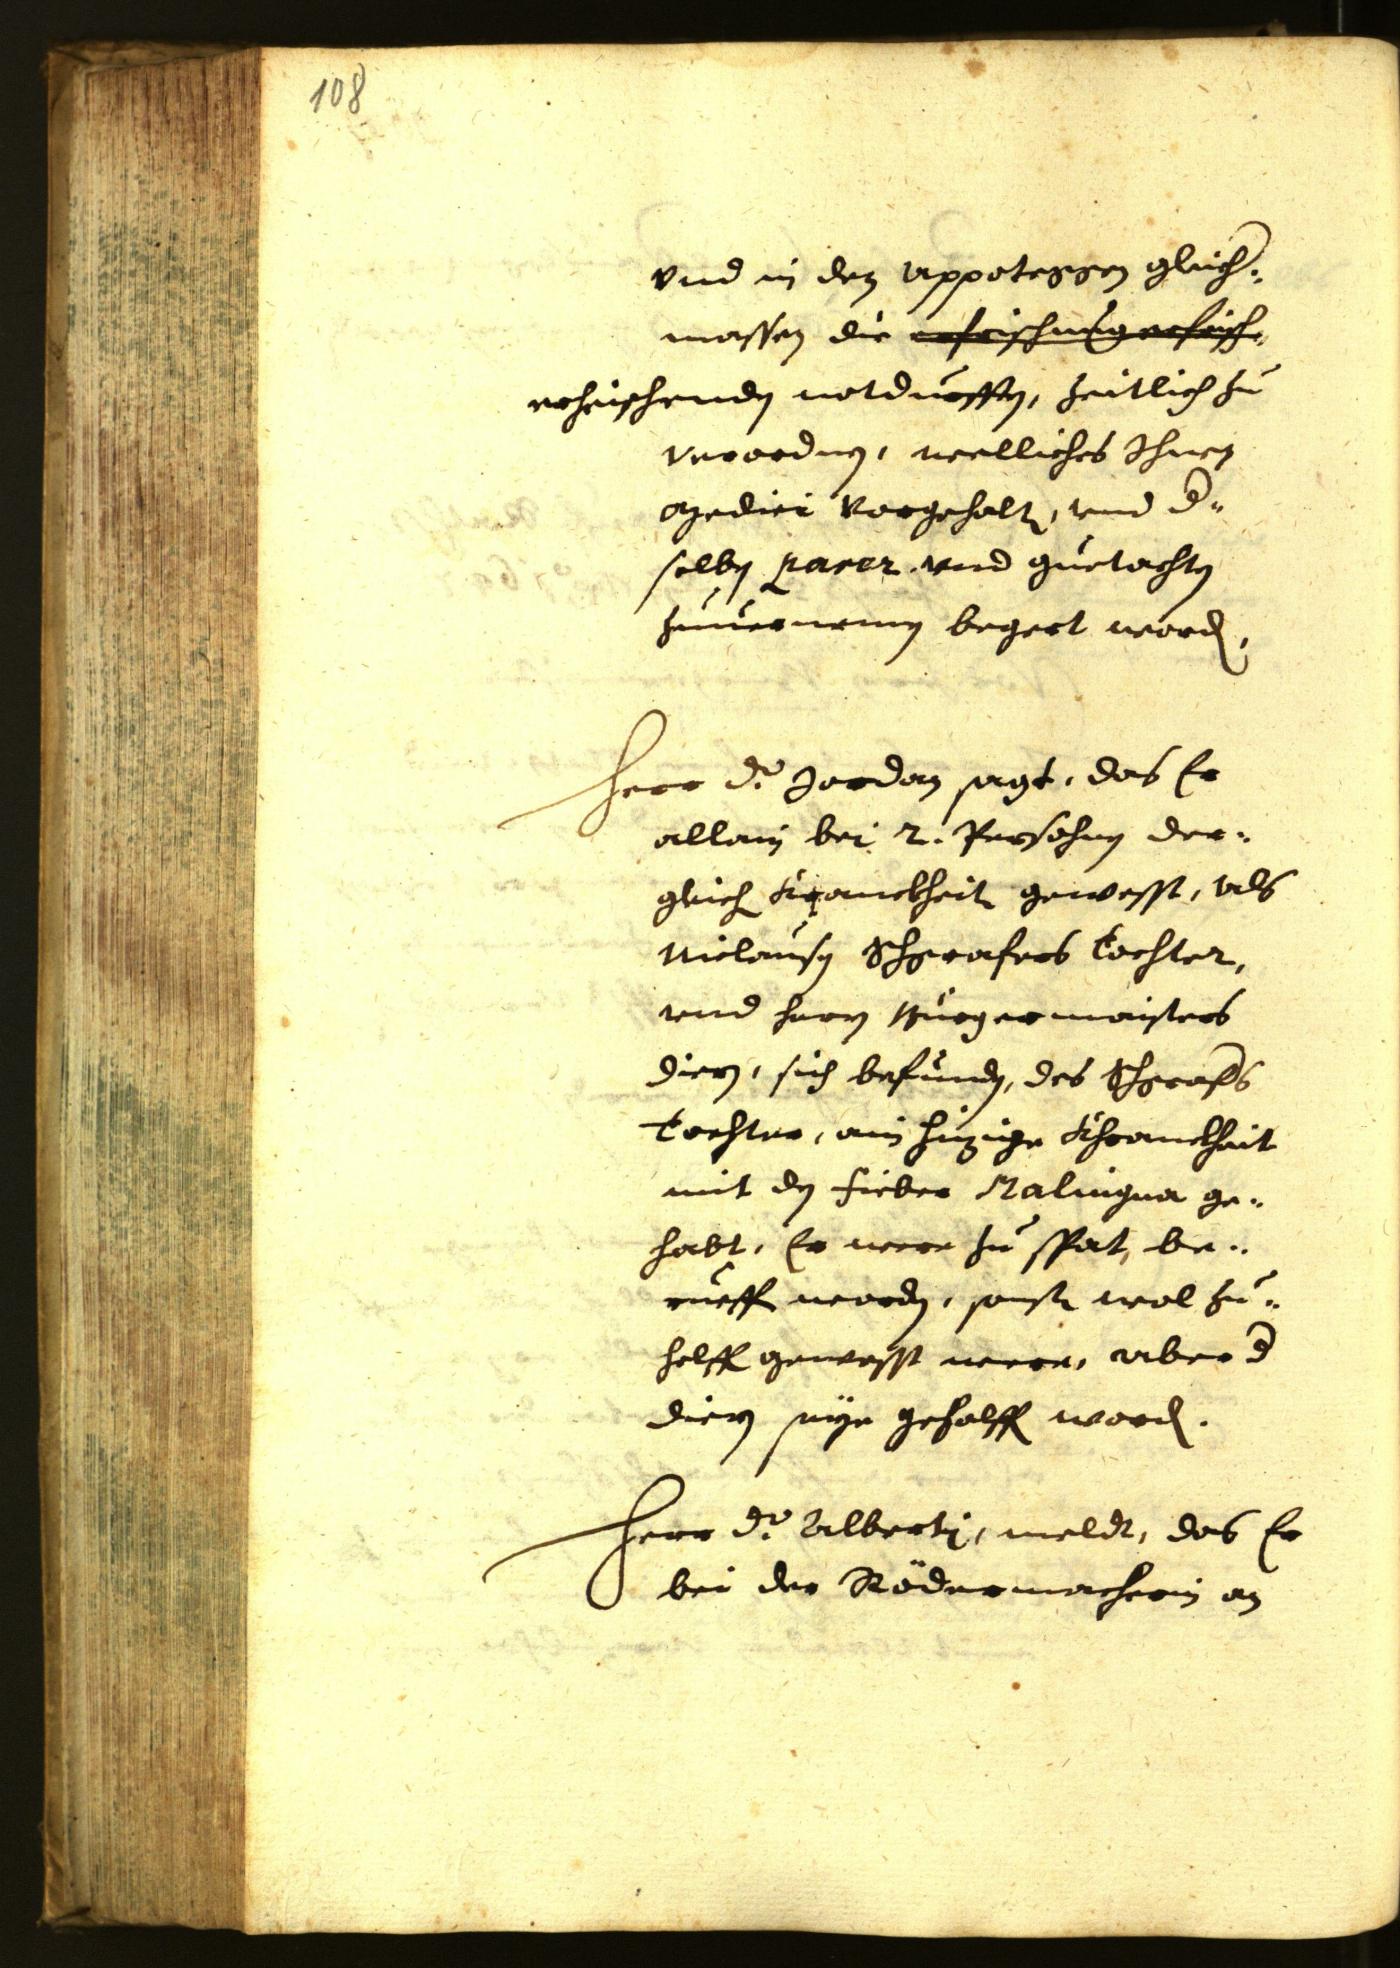 108
vnd in den Appoteggen gleich¬
massen die
erheischenden notdurfften, zeitlich zu
verordnen, welliches Ihnen
Medici vorgehalten, vnd d¬
selben parer vnd guetachten
zuuernemen begert worden,
Herr Dr Jordan sagt, das Er
allain bei 2. Persohnen der¬
gleich Kranckheit gewesst, als
Niclausen Schgrafers Tochter,
vnd herrn Bürgermaisters
diern, sich befunden, des Schgrafers
Tochter, ain hizige Khranckhait
mit den fieber Malingna ge¬
habt, Er were zu spat, be¬
rueff worden, sonst wol zu¬
helffen gewesst were, aber d
diern seye geholffen worden.
Herr Dr Alberti, meldt, das Er
bei der Rödermacherin an